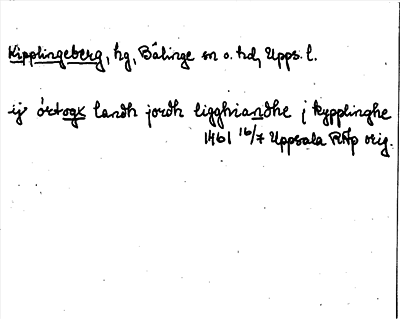 Kipplingeberg, hg, Bälinge sn o. hd, Upps. l.
ij ørtogx landh jordh ligghiandhe j kypplinghe
1461 16/7 Uppsala RAp orig.